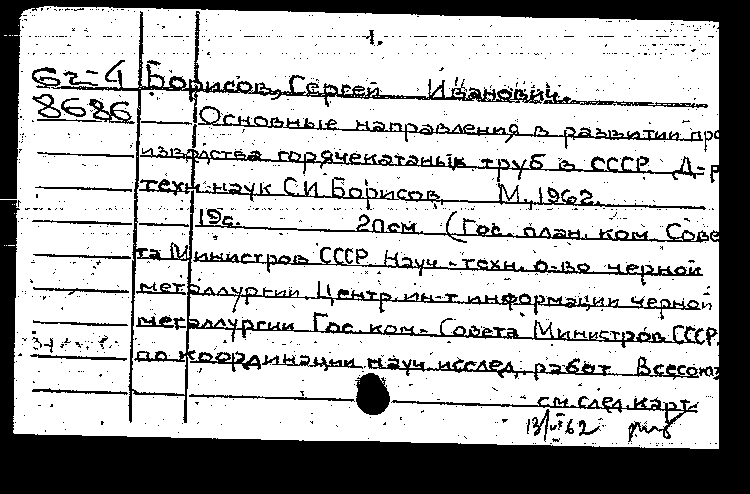 1.
62-4 Борисов, Сергей Иванович.
8686 Основные направления в развитии про
изводства горячекатаных труб в СССР. Д-р
техн. наук С.И. Борисов. М., 1962.
19с. 20см. (Гос. план. ком. Сове
та Министров СССР. Науч.-техн. о-во черной
металлургии. Центр. ин-т информации черной
металлургии Гос. ком. Совета Министров СССР.
по координации науч. исслед. работ Всесоюз
см. след. карт.
13/VI 62